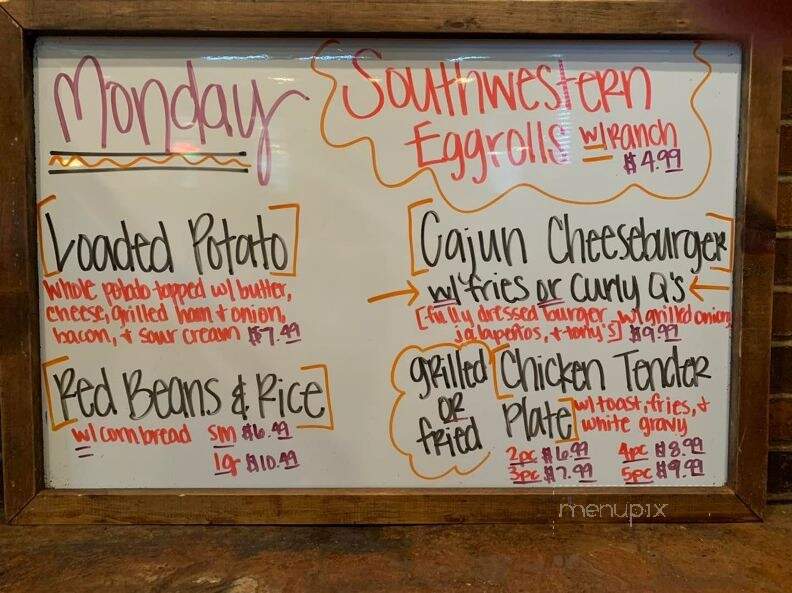 Monday
Southwestern
Eggrolls w/ Ranch
$4.99
Loaded Potato
whole potato topped w/ butter,
cheese, grilled ham & onion,
bacon, & sour cream $7.49
Red Beans & Rice
w/ cornbread sm $6.49
lgr $10.49
Cajun Cheeseburger
w/ fries or Curly Q's
[fully dressed burger w/ grilled onion,
jalapeños, & tony's] $9.99
grilled
OR
fried
Chicken Tender
Plate w/ toast, fries, &
white gravy
2pc $6.99 4pc $8.99
3pc $7.99 5pc $9.99
menupix